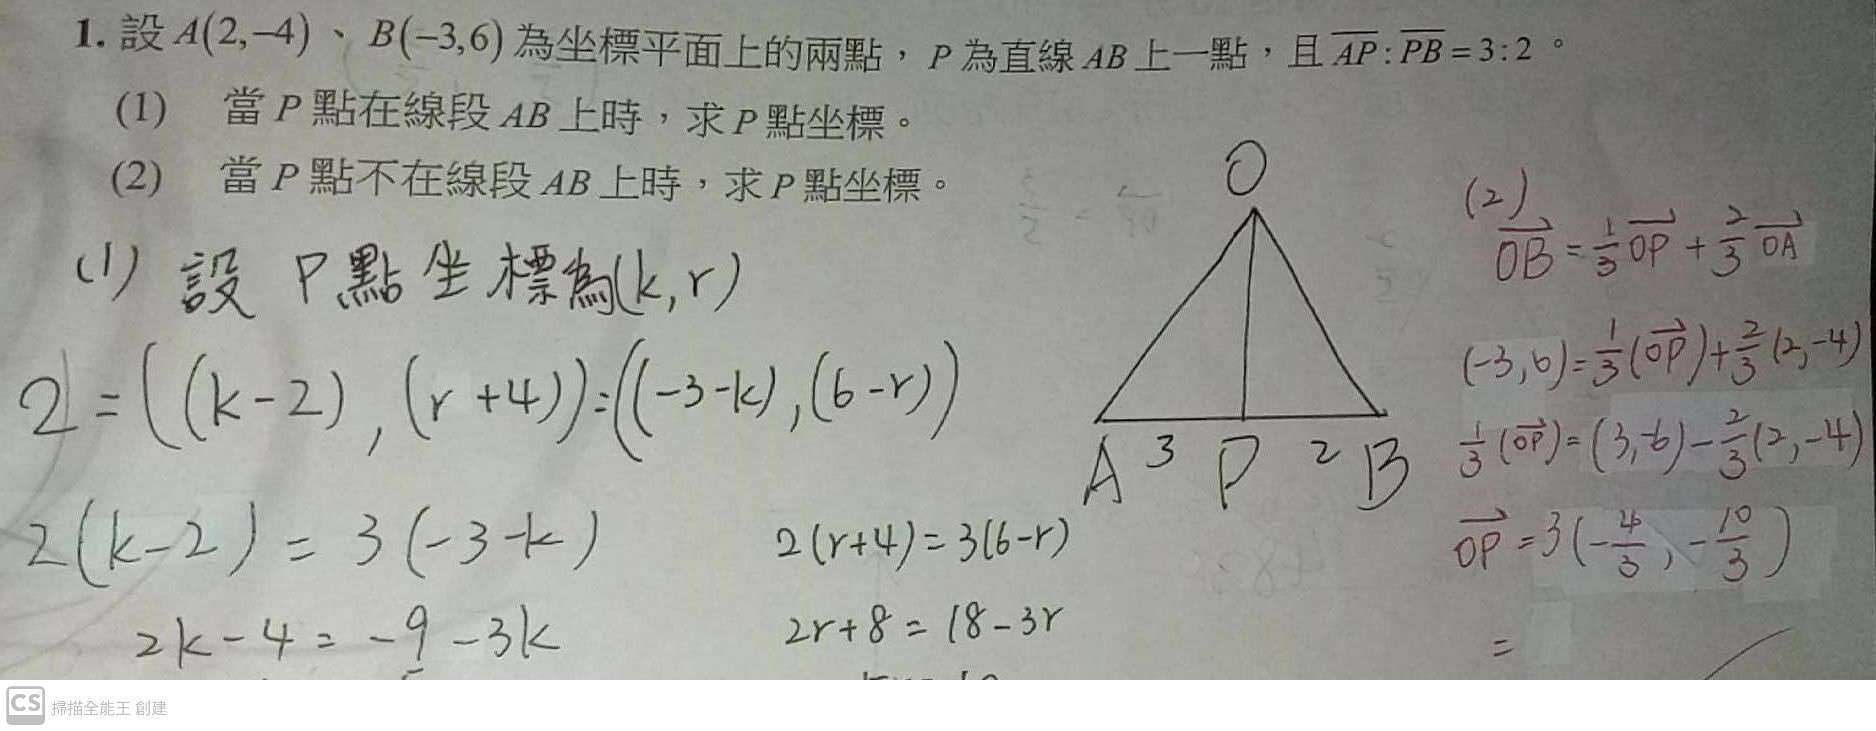 1. 設 A(2,−4)、B(−3,6) 為坐標平面上的兩點，P 為直線 AB 上一點，且 AP : PB = 3 : 2。
(1) 當 P 點在線段 AB 上時，求 P 點坐標。
(2) 當 P 點不在線段 AB 上時，求 P 點坐標。
(1) 設 P點坐標為(k,r)
2 = ((k-2), (r+4)) = ((-3-k), (6-r))
2(k-2) = 3(-3-k)
2k-4 = -9-3k
2(r+4) = 3(6-r)
2r+8 = 18-3r
O
A 3 P 2 B
(2)
OB = 1/3 OP + 2/3 OA
(-3,6) = 1/3(OP) + 2/3(2,-4)
1/3(OP) = (3,-6) - 2/3(2,-4)
OP = 3(-4/3, -10/3)
=
CS 掃描全能王 創建